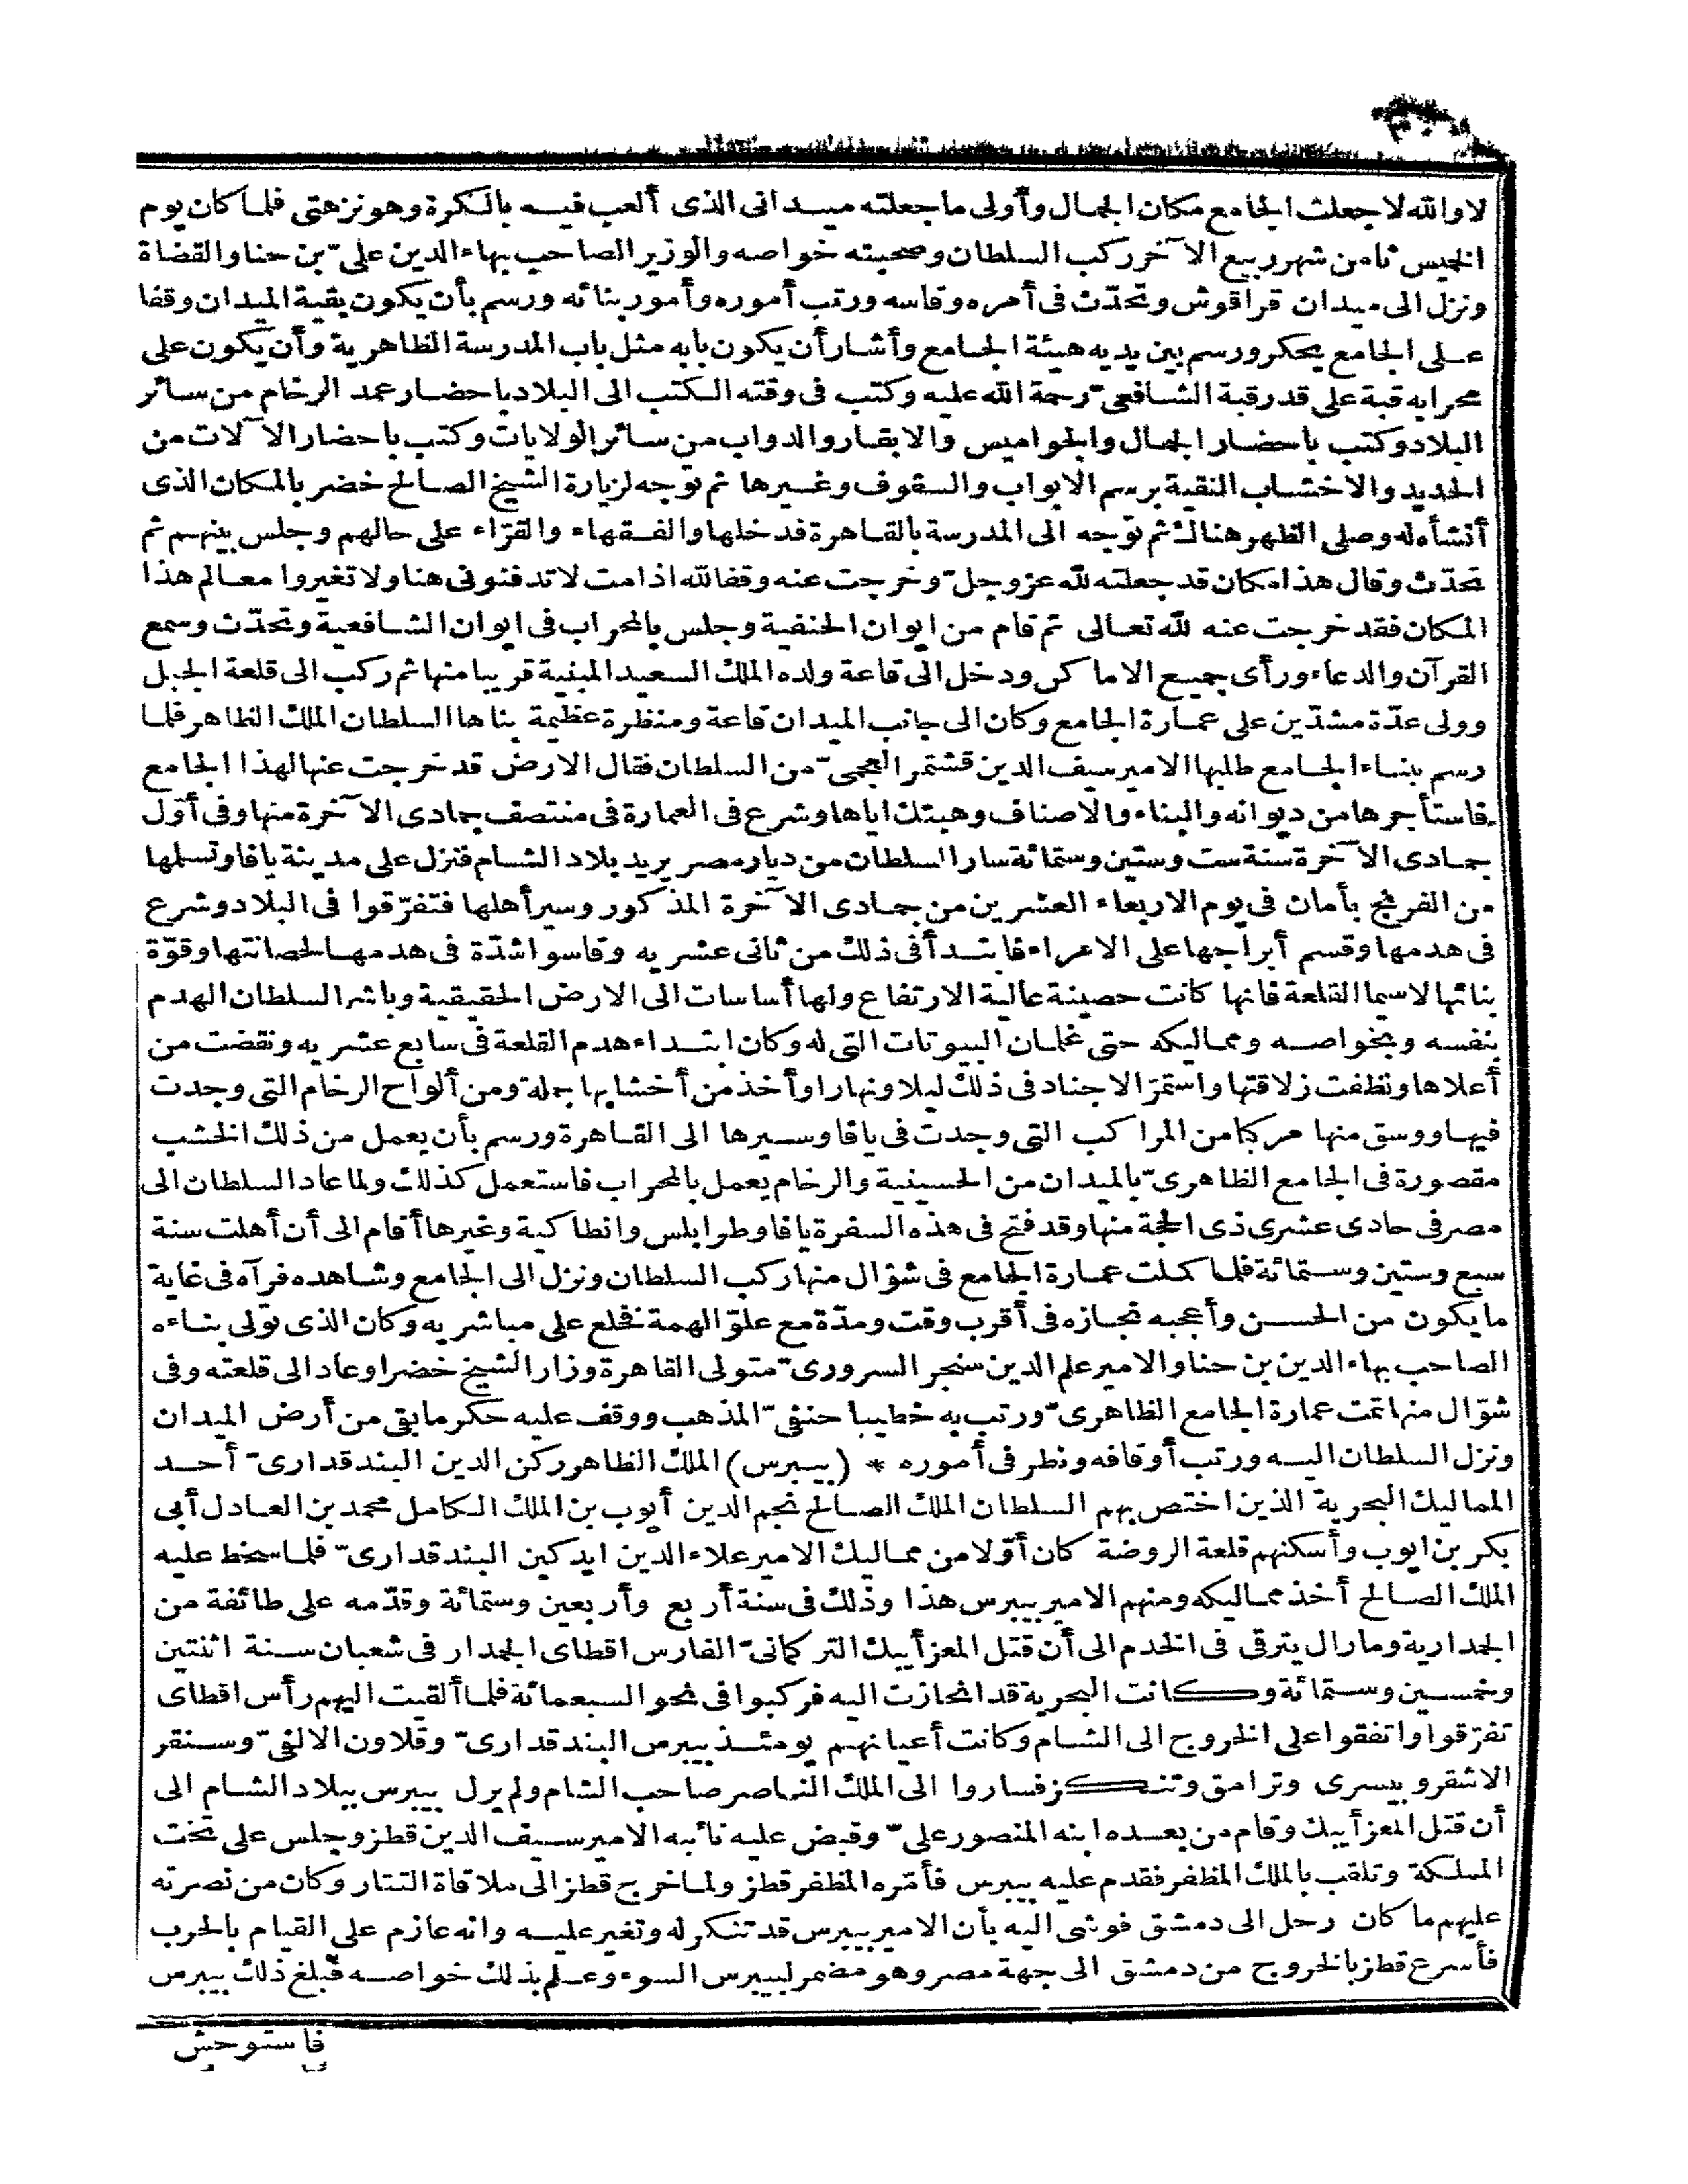 ٣٠٠
لا والله لا جعلت الجامع مكان الجمال وأولى ما جعلته ميدانى الذى ألعب فيه بالكرة وهو نزهتى فلما كان يوم
الخميس ثامن شهر ربيع الآخر ركب السلطان وصحبته خواصه والوزير الصاحب بهاء الدين علىّ بن حنا والقضاة
ونزل الى ميدان قراقوش وتحدّث فى أمره وقاسه ورتب أموره وأمور بنائه ورسم بأن يكون بقية الميدان وقفا
على الجامع يحكر ورسم بين يديه هيئة الجامع وأشار أن يكون بابه مثل باب المدرسة الظاهرية وأن يكون على
محرابه قبة على قدر قبة الشافعىّ رحمة الله عليه وكتب فى وقته الكتب الى البلاد باحضار عمد الرخام من سائر
البلاد وكتب باحضار الجمال والجواميس والابقار والدواب من سائر الولايات وكتب باحضار الآلات من
الحديد والاخشاب النقية برسم الابواب والسقوف وغيرها ثم توجه لزيارة الشيخ الصالح خضر بالمكان الذى
أنشأه له وصلى الظهر هناك ثم توجه الى المدرسة بالقاهرة فدخلها والفقهاء والقرّاء على حالهم وجلس بينهم ثم
تحدّث وقال هذا مكان قد جعلته لله عز وجلّ وخرجت عنه وقفا لله اذا مت لا تدفنونى هنا ولا تغيروا معالم هذا
المكان فقد خرجت عنه لله تعالى ثم قام من ايوان الحنفية وجلس بالمحراب فى ايوان الشافعية وتحدّث وسمع
القرآن والدعاء ورأى جميع الاماكن ودخل الى قاعة ولده الملك السعيد المبنية قريبا منها ثم ركب الى قلعة الجبل
وولى عدّة مشدّين على عمارة الجامع وكان الى جانب الميدان قاعة ومنظرة عظيمة بناها السلطان الملك الظاهر فلما
رسم ببناء الجامع طلبها الامير سيف الدين قشتمر العجمىّ من السلطان فقال الارض قد خرجت عنها لهذا الجامع
فاستأجرها من ديوانه والبناء والاصناف وهبتك اياها وشرع فى العمارة فى منتصف جمادى الآخرة منها وفى أوّل
جمادى الآخرة سنة ست وستين وستمائة سار السلطان من ديار مصر يريد بلاد الشام فنزل على مدينة يافا وتسلمها
من الفرنج بأمان فى يوم الاربعاء العشرين من جمادى الآخرة المذكور وسير أهلها فتفرّقوا فى البلاد وشرع
فى هدمها وقسم أبراجها على الامراء فابتدأ فى ذلك من ثانى عشريه وقاسوا شدّة فى هدمها لحصانتها وقوّة
بنائها لاسيما القلعة فانها كانت حصينة عالية الارتفاع ولها أساسات الى الارض الحقيقية وباشر السلطان الهدم
بنفسه وبخواصه ومماليكه حتى غلمان البيوتات التى له وكان ابتداء هدم القلعة فى سابع عشريه ونقضت من
أعلاها ونظفت زلاقتها واستمرّ الاجناد فى ذلك ليلا ونهارا وأخذ من أخشابها جملة ومن ألواح الرخام التى وجدت
فيها ووسق منها مركبا من المراكب التى وجدت فى يافا وسيرها الى القاهرة ورسم بأن يعمل من ذلك الخشب
مقصورة فى الجامع الظاهرىّ بالميدان من الحسينية والرخام يعمل بالمحراب فاستعمل كذلك ولما عاد السلطان الى
مصر فى حادى عشرى ذى الحجة منها وقد فتح فى هذه السفرة يافا وطرابلس وانطاكية وغيرها أقام الى أن أهلت سنة
سبع وستين وستمائة فلما كملت عمارة الجامع فى شوّال منها ركب السلطان ونزل الى الجامع وشاهده فرآه فى غاية
ما يكون من الحسن وأعجبه نجازه فى أقرب وقت ومدّة مع علوّ الهمة فخلع على مباشريه وكان الذى تولى بناءه
الصاحب بهاء الدين بن حنا والامير علم الدين سنجر السرورىّ متولى القاهرة وزار الشيخ خضرا وعاد الى قلعته وفى
شوّال منها تمت عمارة الجامع الظاهرىّ ورتب به خطيبا حنفىّ المذهب ووقف عليه حكر ما بقى من أرض الميدان
ونزل السلطان اليه ورتب أوقافه ونظر فى أموره * (بيبرس) الملك الظاهر ركن الدين البندقدارىّ أحد
المماليك البحرية الذين اختص بهم السلطان الملك الصالح نجم الدين أيوب بن الملك الكامل محمد بن العادل أبى
بكر بن ايوب وأسكنهم قلعة الروضة كان أوّلا من مماليك الامير علاء الدين ايدكين البندقدارىّ فلما سخط عليه
الملك الصالح أخذ مماليكه ومنهم الامير بيبرس هذا وذلك فى سنة أربع وأربعين وستمائة وقدّمه على طائفة من
الجمدارية وما زال يترقى فى الخدم الى أن قتل المعز أيبك التركمانىّ الفارس اقطاى الجمدار فى شعبان سنة اثنتين
وخمسين وستمائة وكانت البحرية قد انحازت اليه فركبوا فى نحو السبعمائة فلما ألقيت اليهم رأس اقطاى
تفرّقوا واتفقوا على الخروج الى الشام وكانت أعيانهم يومئذ بيبرس البندقدارىّ وقلاون الالفىّ وسنقر
الاشقر وبيسرى وترامق وتنكز فساروا الى الملك الناصر صاحب الشام ولم يزل بيبرس ببلاد الشام الى
أن قتل المعز أيبك وقام من بعده ابنه المنصور علىّ وقبض عليه نائبه الامير سيف الدين قطز وجلس على تخت
المملكة وتلقب بالملك المظفر فقدم عليه بيبرس فأمّره المظفر قطز ولما خرج قطز الى ملاقاة التتار وكان من نصرته
عليهم ما كان رحل الى دمشق فوشى اليه بأن الامير بيبرس قد تنكر له وتغير عليه وانه عازم على القيام بالحرب
فأسرع قطز بالخروج من دمشق الى جهة مصر وهو مضمر لبيبرس السوء وعلم بذلك خواصه فبلغ ذلك بيبرس
فاستوحش